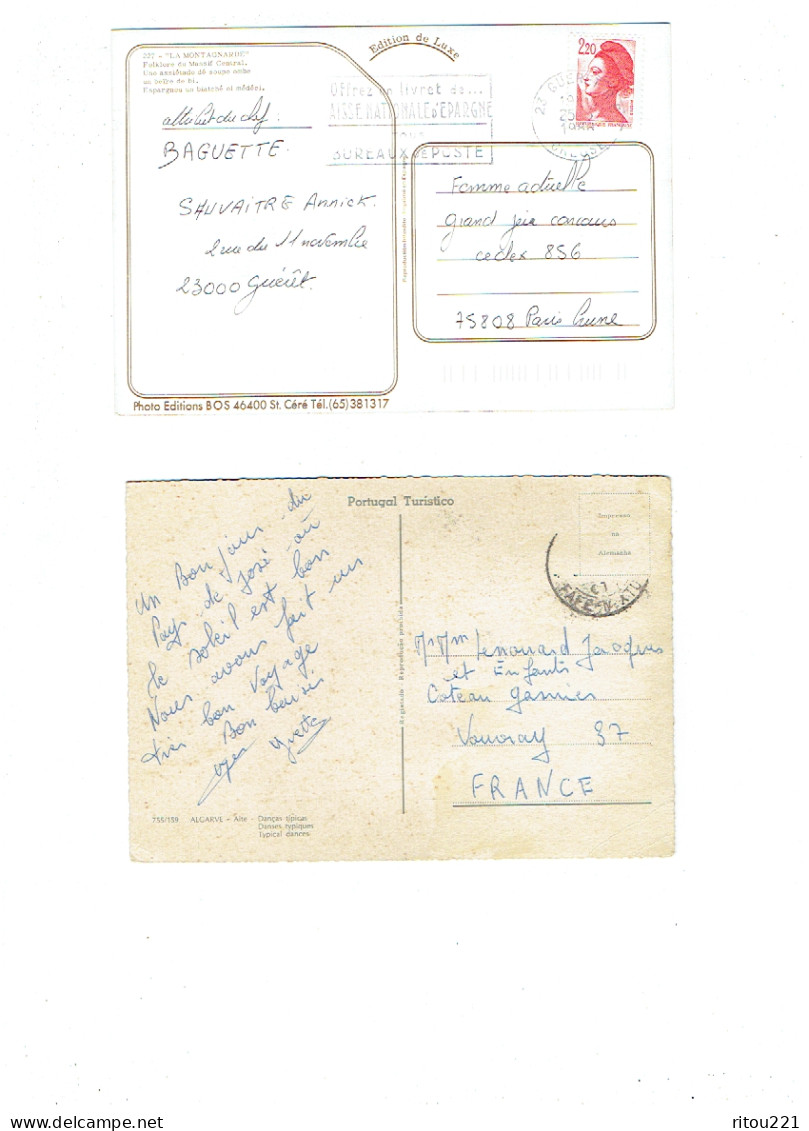 Edition de Luxe
227 - "LA MONTAGNARDE"
Folklore du Massif Central.
Une assiétado dé soupo
un beïre de bi,
Espargnou un biatché ol médéci.
2,20
Offrez un livret de...
AISSE NATIONALE D'EPARGNE
BUREAUX DE POSTE
23 GUERET
CREUSE
attribut du chef
BAGUETTE.
SAUVAITRE Annick.
2 rue du 11 novembre
23000 Guéret.
Femme actuelle
grand jeu concours
cedex 856
75808 Paris brune
Photo Editions BOS 46400 St. Céré Tél.(65)381317
Portugal Turístico
Impresso
na
Alemanha
Un Bonjour du
Pays de José où
le soleil est bon
Nous avons fait un
très bon voyage
Bon baisers
Yvette
Mr Mme Lenouard Jacques
et Enfants
Coteau
Vouvray 37
FRANCE
755/159 ALGARVE - Alte - Danças típicas
Danses typiques
Typical dances
ritou221